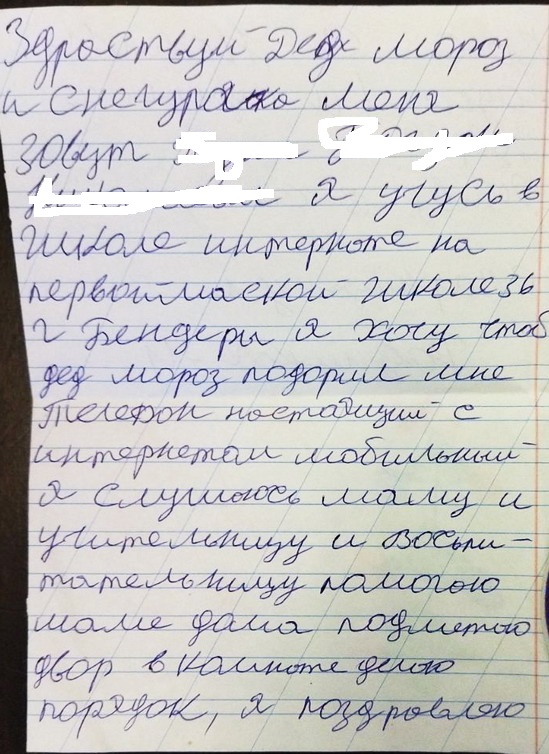 Здраствуй Дед мороз
и снегурачка меня
зовут
Я учусь в
школе интернате на
первоймаской школе 36
г Бендеры я хочу чтоб
дед мороз подорил мне
телефон настаящий с
интернетом мобильный
я слушаюсь маму и
учительницу и воспи-
тательницу помогою
маме дома подметаю
двор в комноте делаю
порядок, я поздровляю